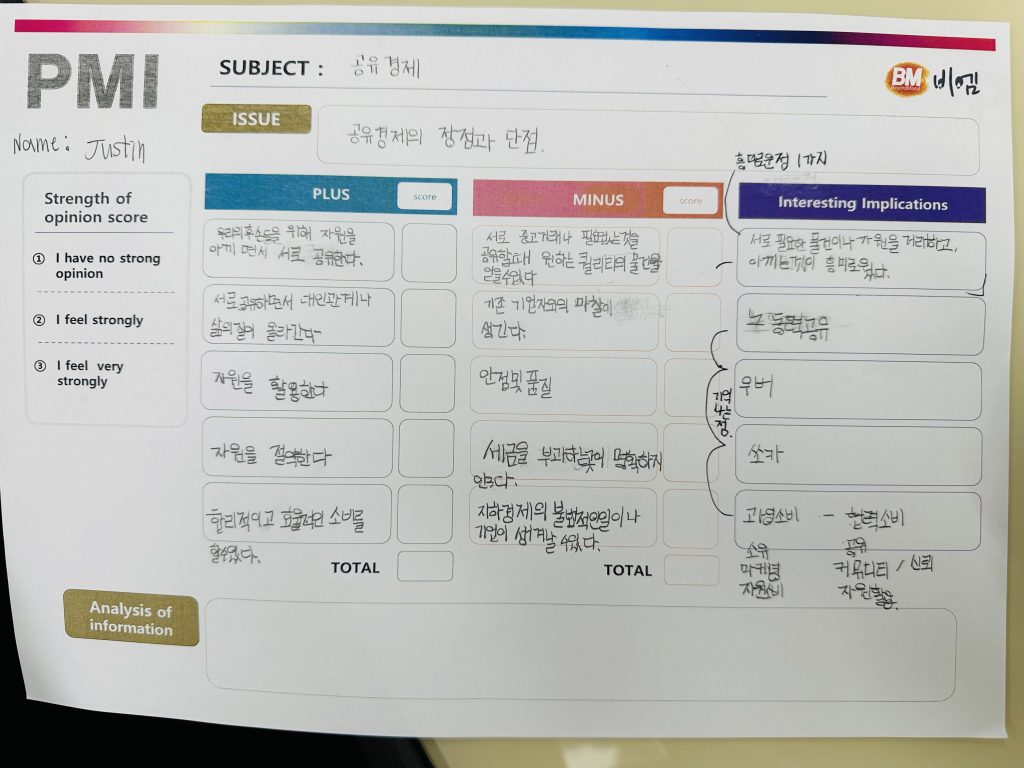 PMI
SUBJECT : 공유경제
BM 비엠
Name: Justin
ISSUE
공유경제의 장점과 단점.
흥미로운점 1가지
Strength of
opinion score
① I have no strong
opinion
② I feel strongly
③ I feel very
strongly
PLUS score
우리의 후손들을 위해 자원을
아끼면서 서로 공유한다.
서로 공유하면서 대인관계나
삶의 질이 올라간다
자원을 활용한다
자원을 절약한다
합리적이고 효율적인 소비를
할수있다.
TOTAL
MINUS score
서로 중고거래나 필요없는것을
공유할때 원하는 퀄리티의 물건을
얻을수있다
기존 기업자와의 마찰이
생긴다.
안정및 품질
세금을 부과하는곳이 명확하지
안다.
지하경제의 불법적인일이나
기업이 생겨날수있다.
TOTAL
Interesting Implications
서로 필요한 물건이나 자원을 거래하고,
아끼는게 흥미로웠다.
노동력공유
기억
나는
점.
우버
쏘카
과열소비 – 협력소비
소유 공유
마케팅 커뮤디티 / 신뢰
자원소비 자원활용.
Analysis of
information